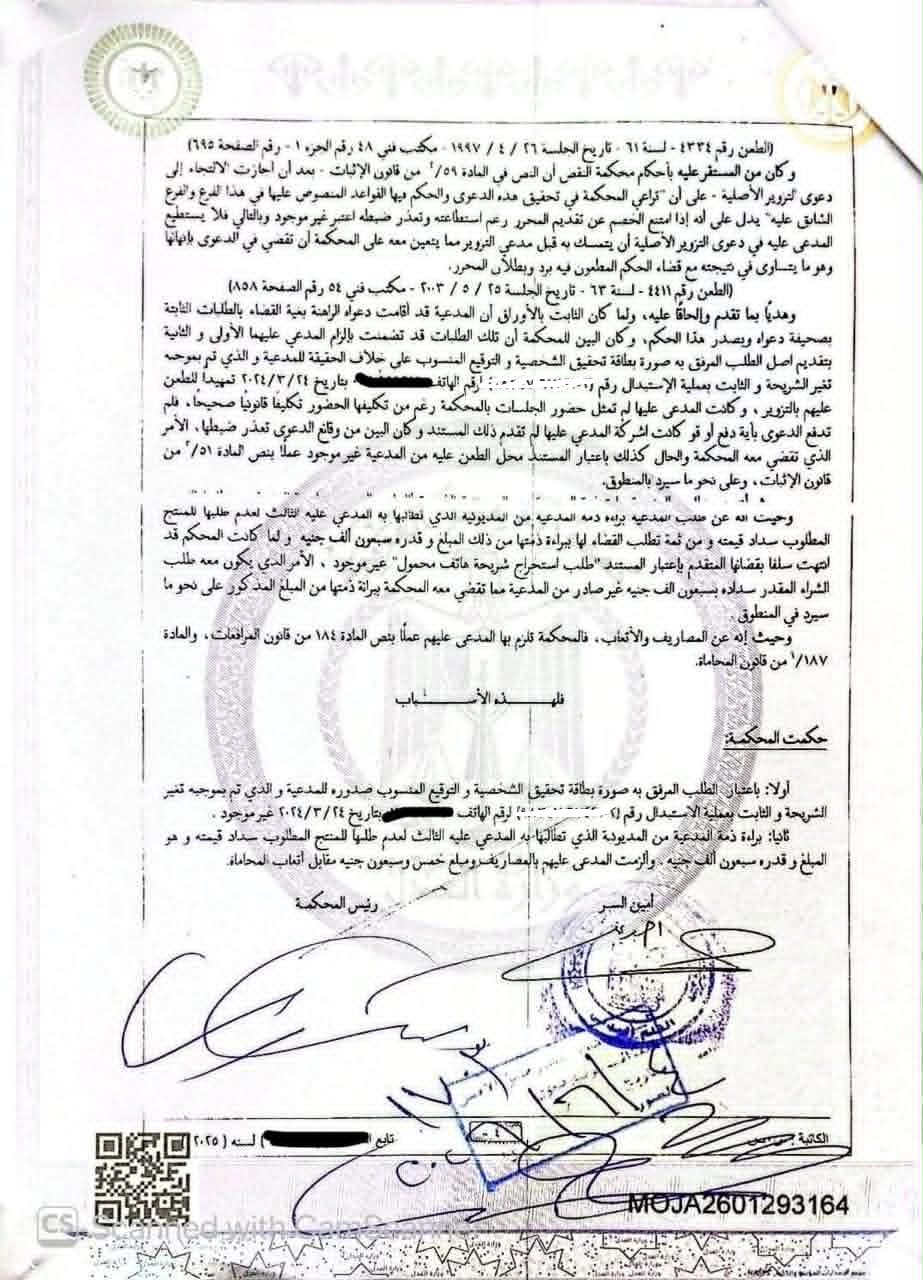 (الطعن رقم ٤٣٣٤ - لسنة ٦١ - تاريخ الجلسة ٢٦ / ٤ / ١٩٩٧ - مكتب فني ٤٨ رقم الجزء ١ - رقم الصفحة ٦٩٥)
وكان من المستقر عليه بأحكام محكمة النقض أن النص في المادة ٥٩/ من قانون الإثبات - بعد أن أجازت الالتجاء إلى
دعوى التزوير الأصلية - على أن "تراعي المحكمة في تحقيق هذه الدعوى والحكم فيها القواعد المنصوص عليها في هذا الفرع والفرع
السابق عليه" يدل على أنه إذا امتنع الخصم عن تقديم المحرر رغم استطاعته وتعذر ضبطه اعتبر غير موجود وبالتالي فلا يستطيع
المدعى عليه في دعوى التزوير الأصلية أن يتمسك به قبل مدعي التزوير مما يتعين معه على المحكمة أن تقضي في الدعوى بإنهائها
وهو ما يتساوى في نتيجته مع قضاء الحكم المطعون فيه برد وبطلان المحرر.
(الطعن رقم ٤٤١١ - لسنة ٦٣ - تاريخ الجلسة ٢٥ / ٥ / ٢٠٠٣ - مكتب فني ٥٤ رقم الصفحة ٨٥٨)
وهديًا بما تقدم وإلحاقًا عليه، ولما كان الثابت بالأوراق أن المدعية قد أقامت دعواه الراهنة بغية القضاء بالطلبات الثابتة
بصحيفة دعواه وبصدر هذا الحكم، وكان البين للمحكمة أن تلك الطلبات قد تضمنت بإلزام المدعي عليهما الأولى و الثانية
بتقديم اصل الطلب المرفق به صورة بطاقة تحقيق الشخصية و التوقيع المنسوب على خلاف الحقيقة للمدعية و الذي تم بموجبه
تغير الشريحة و الثابت بعملية الإستبدال رقم رقم الهاتف بتاريخ ٢٠٢٤/٣/٢٤ تمهيدًا للطعن
عليهم بالتزوير ، و كانت المدعى عليها لم تمثل حضور الجلسات بالمحكمة رغم من تكليفها الحضور تكليفًا قانونيًا صحيحًا، فلم
تدفع الدعوى بأية دفع أو قو كانت اشركة المدعي عليها لم تقدم ذلك المستند و كان البين من وقائع الدعوى تعذر ضبطها، الأمر
الذي تقضي معه المحكمة والحال كذلك باعتبار المستند محل الطعن عليه من المدعية غير موجود عملًا بنص المادة ٥١/ من
قانون الإثبات، وعلى نحو ما سيرد بالمنطوق.
وحيث انه عن طلب المدعية براءة ذمة المدعية من المديونية الذي تطالبها به المدعي عليه الثالث لعدم طلبها للمنتج
المطلوب سداد قيمته و من ثمة تطلب القضاء لها ببراءة ذمتها من ذلك المبلغ و قدره سبعون ألف جنيه و لما كانت المحكم قد
انتهت سلفا بقضائها المتقدم بإعتبار المستند "طلب استخراج شريحة هاتف محمول" غير موجود ، الأمر الذي يكون معه طلب
الشراء المقدر سداده بسبعون الف جنيه غير صادر من المدعية مما تقضي معه المحكمة ببرائة ذمتها من المبلغ المذكور على نحو ما
سيرد في المنطوق.
وحيث إنه عن المصاريف والأتعاب، فالمحكمة تلزم بها المدعى عليهم عملًا بنص المادة ١٨٤ من قانون المرافعات، والمادة
١٨٧/ من قانون المحاماة.
فلهـــذه الأســـباب
حكمت المحكمة:
أولًا: باعتبار الطلب المرفق به صورة بطاقة تحقيق الشخصية و التوقيع المنسوب صدوره للمدعية و الذي تم بموجبه تغير
الشريحة و الثابت بعملية الاستبدال رقم لرقم الهاتف بتاريخ ٢٠٢٤/٣/٢٤ غير موجود .
ثانيًا: براءة ذمة المدعية من المديونية الذي تطالبها به المدعي عليه الثالث لعدم طلبها للمنتج المطلوب سداد قيمته و هو
المبلغ و قدره سبعون ألف جنيه ، وألزمت المدعى عليهم بالمصاريف ومبلغ خمس وسبعون جنيه مقابل أتعاب المحاماة.
أمين السر رئيس المحكمة
وزارة العدل
الكاتبة
تابع ) لسنة ( ٢٠٢٥
MOJA2601293164
CS Scanned with CamScanner